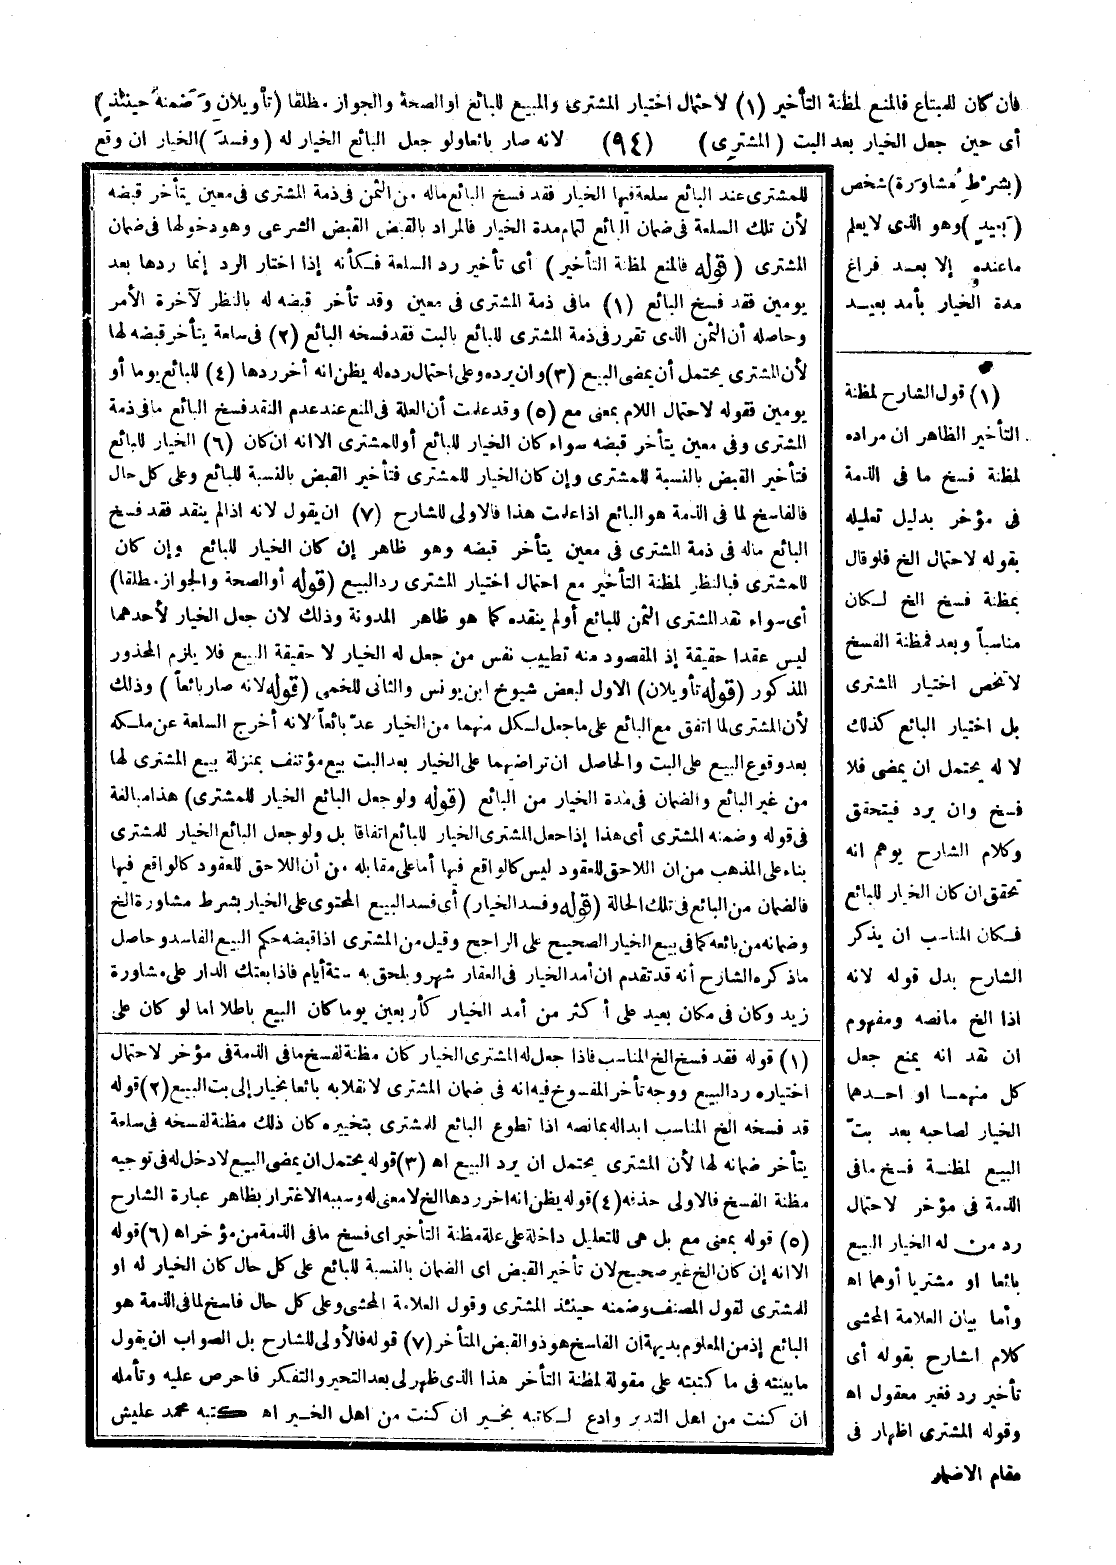 فان كان للمبتاع فالمنع لمظنة التأخير (١) لاحتمال اختيار المشترى والمبيع للبائع اوالصحة والجواز مطلقا (تأويلان وَضمنهُ حينئذٍ)
أى حين جعل الخيار بعد البت (المشترِى) (٩٤) لانه صار بائعا ولو جعل البائع الخيار له (وفسدَ) الخيار ان وقع
(بشرْطِ مُشاورَة) شخص
(بَعِيدٍ) وهو الذى لا يعلم
ما عنده إلا بعد فراغ
مدة الخيار بأمد بعيد
(١) قول الشارح لمظنة
التأخير الظاهر ان مراده
لمظنة فسخ ما فى الذمة
فى مؤخر بدليل تعليله
بقوله لاحتمال الخ فلو قال
بمظنة فسخ الخ لكان
مناسباً وبعد فمظنة الفسخ
لا تخص اختيار المشترى
بل اختيار البائع كذلك
لا له يحتمل ان يمضى فلا
فسخ وان يرد فيتحقق
وكلام الشارح يوهم انه
تحقق ان كان الخيار للبائع
فكان المناسب ان يذكر
الشارح بدل قوله لانه
اذا الخ مانصه ومفهوم
ان نقد انه يمنع جعل
كل منهما او احدهما
الخيار لصاحبه بعد بتّ
البيع لمظنة فسخ ما فى
الذمة فى مؤخر لاحتمال
رد من له الخيار البيع
بائعا او مشتريا أوهما اه
وأما بيان العلامة المحشى
كلام الشارح بقوله أى
تأخير رد فغير معقول اه
وقوله المشترى اظهار فى
مقام الاضمار
للمشترى عند البائع سلعة فيها الخيار فقد فسخ البائع ماله من الثمن فى ذمة المشترى فى معين يتأخر قبضه
لأن تلك السلعة فى ضمان البائع لتمام مدة الخيار فالمراد بالقبض القبض الشرعى وهو دخولها فى ضمان
المشترى (قوله فالمنع لمظنة التأخير) أى تأخير رد السلعة فكأنه إذا اختار الرد إنما ردها بعد
يومين فقد فسخ البائع (١) مافى ذمة المشترى فى معين وقد تأخر قبضه له بالنظر لآخرة الأمر
وحاصله أن الثمن الذى تقرر فى ذمة المشترى للبائع بالبت فقد فسخه البائع (٢) فى سلعة يتأخر قبضه لها
لأن المشترى يحتمل أن يمضى البيع (٣) وان يرده وعلى احتمال رده له يظن انه أخر ردها (٤) للبائع يوما أو
يومين فقوله لاحتمال اللام بمعنى مع (٥) وقد علمت أن العلة فى المنع عند عدم النقد فسخ البائع مافى ذمة
المشترى وفى معين يتأخر قبضه سواء كان الخيار للبائع أو للمشترى الا انه ان كان (٦) الخيار للبائع
فتأخير القبض بالنسبة للمشترى وإن كان الخيار للمشترى فتأخير القبض بالنسبة للبائع وعلى كل حال
فالفاسخ لما فى الذمة هو البائع اذا علمت هذا فالاولى للشارح (٧) ان يقول لانه اذا لم ينقد فقد فسخ
البائع ماله فى ذمة المشترى فى معين يتأخر قبضه وهو ظاهر إن كان الخيار للبائع وإن كان
للمشترى فبالنظر لمظنة التأخير مع احتمال اختيار المشترى رد البيع (قوله أوالصحة والجواز مطلقا)
أى سواء نقد المشترى الثمن للبائع أولم ينقده كما هو ظاهر المدونة وذلك لان جعل الخيار لأحدهما
ليس عقدا حقيقة إذ المقصود منه تطييب نفس من جعل له الخيار لا حقيقة البيع فلا يلزم المحذور
المذكور (قوله تأويلان) الاول لبعض شيوخ ابن يونس والثانى للخمى (قوله لانه صار بائعاً) وذلك
لأن المشترى لما اتفق مع البائع على ما جعل لكل منهما من الخيار عدّ بائعاً لانه أخرج السلعة عن ملكه
بعد وقوع البيع على البت والحاصل ان تراضيهما على الخيار بعد البت بيع مؤتنف بمنزلة بيع المشترى لها
من غير البائع والضمان فى مدة الخيار من البائع (قوله ولو جعل البائع الخيار للمشترى) هذا مبالغة
فى قوله وضمنه المشترى أى هذا إذا جعل المشترى الخيار للبائع اتفاقا بل ولو جعل البائع الخيار للمشترى
بناء على المذهب من ان اللاحق للعقود ليس كالواقع فيها أما على مقابله من أن اللاحق للعقود كالواقع فيها
فالضمان من البائع فى تلك الحالة (قوله وفسد الخيار) أى فسد البيع المحتوى على الخيار بشرط مشاورة الخ
وضمانه من بائعه كما فى بيع الخيار الصحيح على الراجح وقيل من المشترى اذا قبضه حكم البيع الفاسد وحاصل
ماذكره الشارح أنه قد تقدم ان أمد الخيار فى العقار شهر ويلحق به ستة أيام فاذا بعتك الدار على مشاورة
زيد وكان فى مكان بعيد على أكثر من أمد الخيار كأربعين يوما كان البيع باطلا اما لو كان على
(١) قوله فقد فسخ الخ المناسب فاذا جعل له المشترى الخيار كان مظنة لفسخ مافى الذمة فى مؤخر لاحتمال
اختياره رد البيع ووجه تأخر المفسوخ فيه انه فى ضمان المشترى لانقلابه بائعا بخيار إلى بت البيع (٢) قوله
قد فسخه الخ المناسب ابداله بمانصه اذا تطوع البائع للمشترى بتخييره كان ذلك مظنة لفسخه فى سلعة
يتأخر ضمانه لها لأن المشترى يحتمل ان يرد البيع اه (٣) قوله يحتمل ان يمضى البيع لا دخل له فى توجيه
مظنة الفسخ فالاولى حذفه (٤) قوله يظن انه اخر ردها الخ لا معنى له وسببه الاغترار بظاهر عبارة الشارح
(٥) قوله بمعنى مع بل هى للتعليل داخلة على علة مظنة التأخير اى فسخ مافى الذمة من مؤخر اه (٦) قوله
الا انه إن كان الخ غير صحيح لان تأخير القبض اى الضمان بالنسبة للبائع على كل حال كان الخيار له او
للمشترى لقول المصنف وضمنه حينئذ المشترى وقول العلامة المحشى وعلى كل حال فاسخ لما فى الذمة هو
البائع إذ من المعلوم بديهة ان الفاسخ هو ذو القبض المتأخر (٧) قوله فالأولى للشارح بل الصواب ان يقول
ما بينته فى ما كتبته على مقولة لمظنة التأخر هذا الذى ظهر لى بعد التحير والتفكر فاحرص عليه وتأمله
ان كنت من اهل التدبر وادع لكاتبه بخير ان كنت من اهل الخير اه كتبه محمد عليش